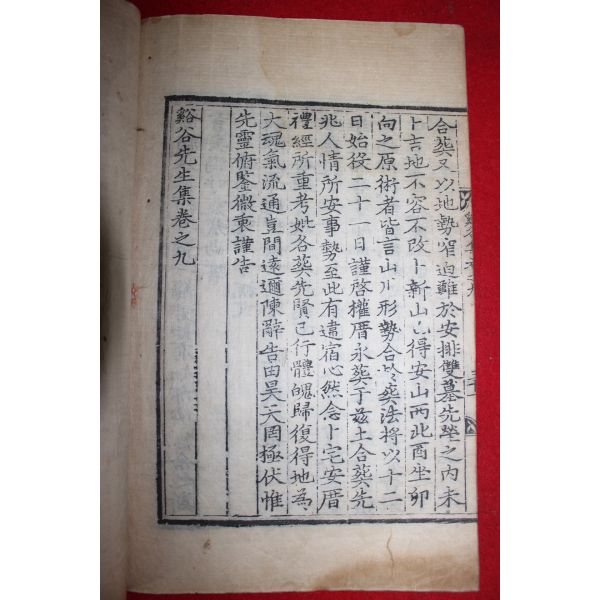 合葬又以地勢窄迫難於安排雙墓先壠之內未
卜吉地不容不改卜新山已得安山兩此酉坐卯
向之原術者皆言山川形勢合於葬法將以十二
日始役二十一日謹啓權厝永葬于玆土合葬先
兆人情所安事勢至此有違宿心然念卜宅安厝
禮經所重考妣各葬先賢已行體魄歸復得地為
大魂氣流通豈間遠邇陳辭告由昊天罔極伏惟
先靈俯鑒微衷謹告
谿谷先生集卷之九